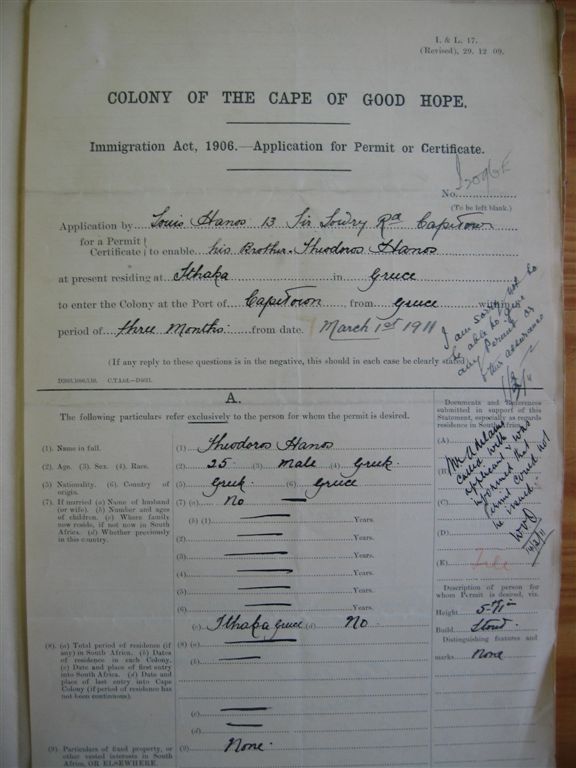 I. & L. 17.
(Revised), 29. 12. 09.
COLONY OF THE CAPE OF GOOD HOPE.
Immigration Act, 1906.—Application for Permit or Certificate.
No.
(To be left blank.)
Application by Louis Hanos 13 Sir Lowry Rd Capetown
for a Permit
Certificate to enable his Brother Theodoros Hanos
at present residing at Ithaka in Greece
to enter the Colony at the Port of Capetown from Greece within
period of three Months from date. March 1st 1911
I am sorry not to
be able to give
any Permit or
other assurance
(If any reply to these questions is in the negative, this should in each case be clearly stated)
A.
The following particulars refer exclusively to the person for whom the permit is desired.
Documents and References
submitted in support of this
Statement, especially as regards
residence in South Africa.
(1). Name in full. (1) Theodoros Hanos
(2). Age. (3). Sex. (4). Race. (2) 25 (3) Male (4) Greek
(5). Nationality. (6). Country of
origin. (5) Greek (6) Greece
(7). If married (a) Name of husband
(or wife). (b) Number and ages
of children. (c) Where family
now reside, if not now in South
Africa. (d) Whether previously
in this country.
(7) (a) No —
(b) (1) — Years.
(2) — Years.
(3) — Years.
(4) — Years.
(5) — Years.
(6) — Years.
(c) Ithaka Greece (d) No
(A)
(B)
(C)
(D)
(E)
Mr
called with
applicant & was
informed that
permit could not
be issued.
14/2/11
Description of person for
whom Permit is desired, viz.
Height 5-7in
Build Stout
Distinguishing features and
marks None
(8). (a) Total period of residence (if
any) in South Africa. (b) Dates
of residence in each Colony.
(c) Date and place of first entry
into South Africa. (d) Date and
place of last entry into Cape
Colony (if period of residence has
not been continuous).
(8) (a) —
(b) —
(c) —
(d) —
(9) Particulars of fixed property, or
other vested interests in South
Africa, OR ELSEWHERE.
(9) None.